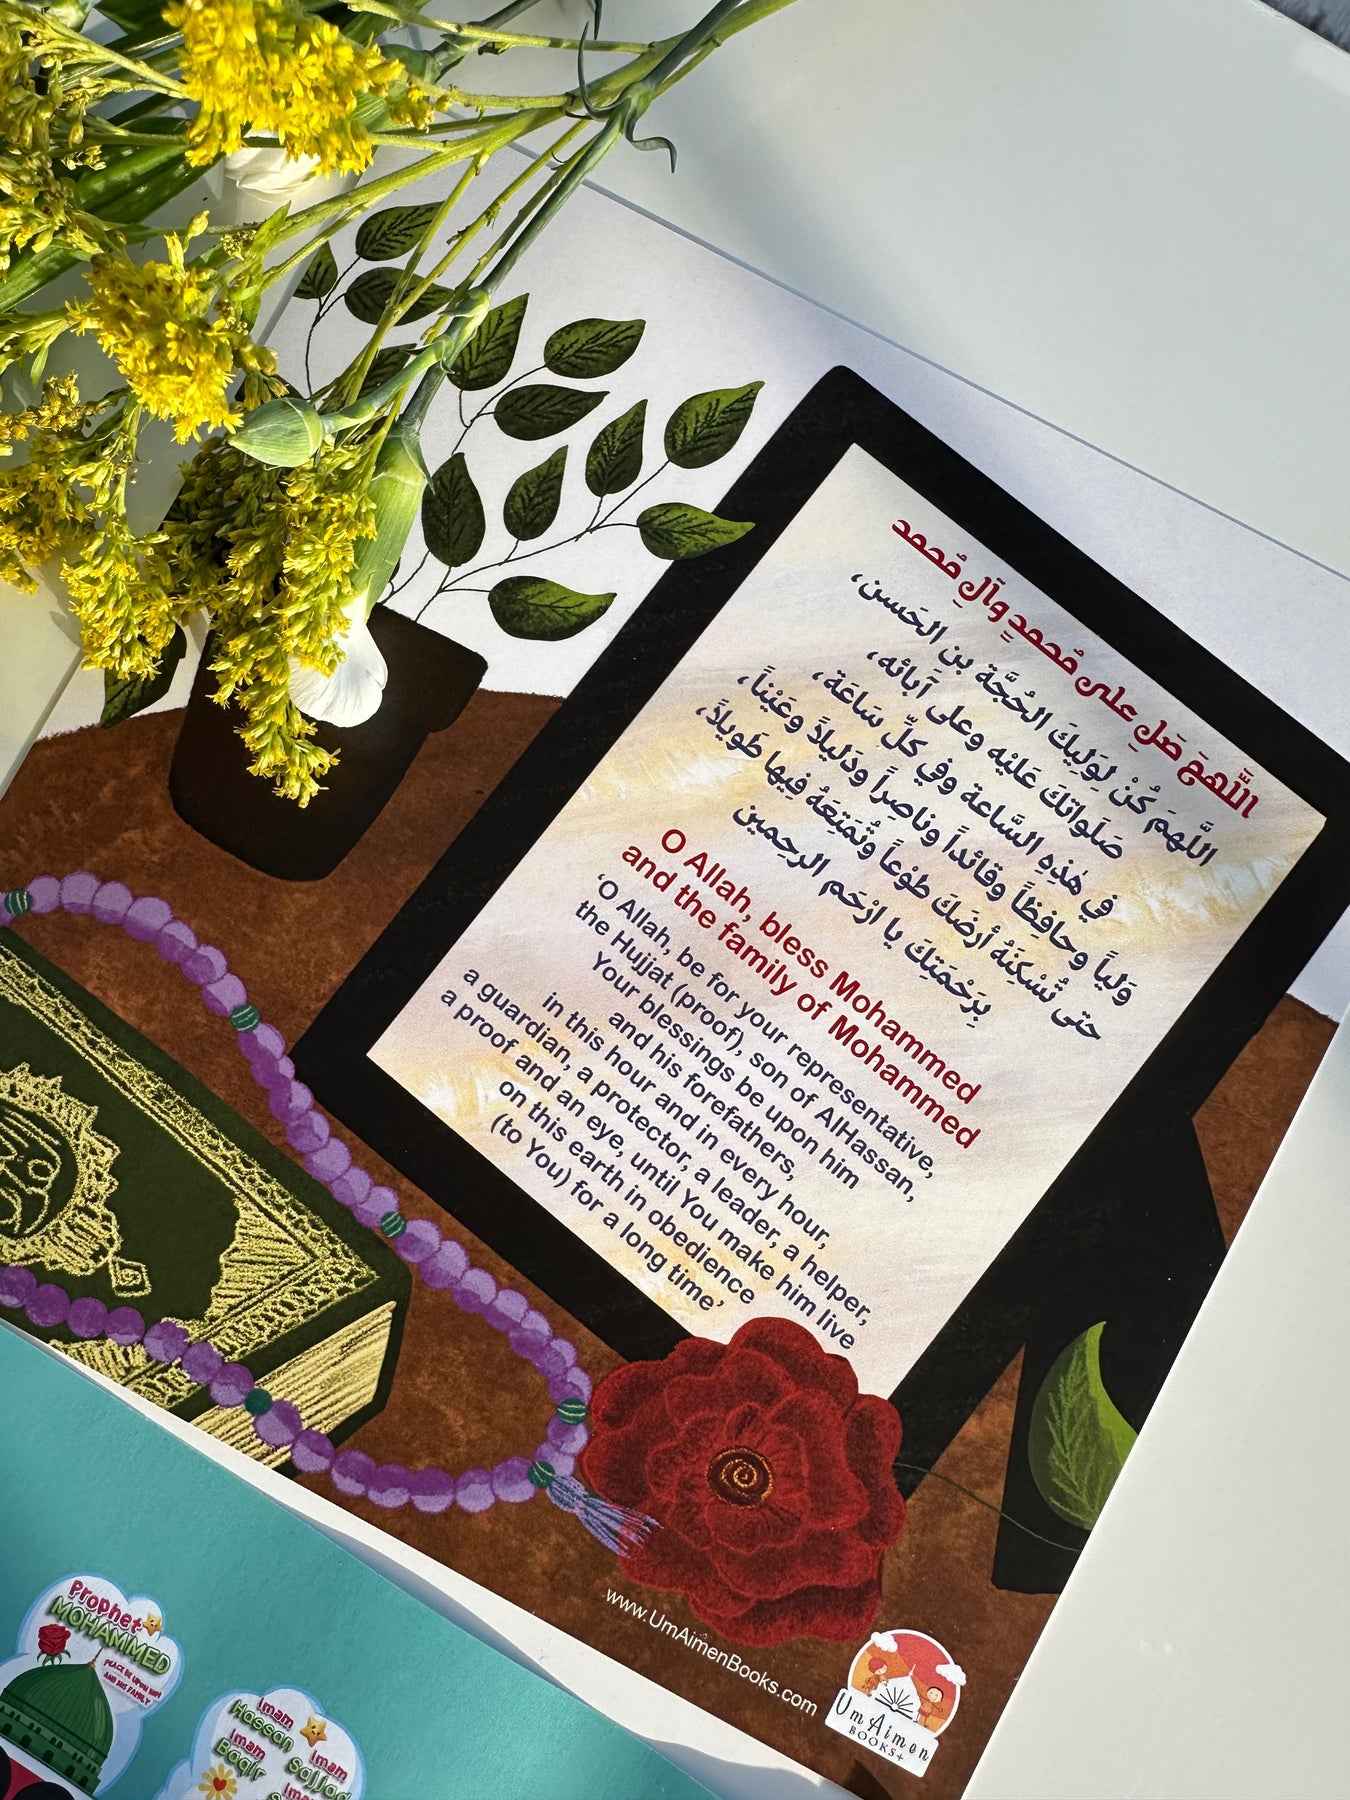 اللَّهمَ صَلِ على مُحمدٍ وآلِ مُحمد
اللَّهمَ كُنْ لِوَلِيكَ الحُجَّة بنِ الحَسن،
صَلَواتكَ عَلَيْه وعلى آبائه،
في هٰذِهِ السَّاعة وفي كلِّ سَاعَة،
وَلياً وحافِظاً وقائداً وناصِراً ودَليلاً وعَيْناً،
حتى تُسْكِنَهُ أرضَكَ طوْعاً وتُمَتِعَهُ فِيها طَويلاً،
بِرَحْمَتِكَ يا ارْحَم الرحِمين
O Allah, bless Mohammed
and the family of Mohammed
‘O Allah, be for your representative,
the Hujjat (proof), son of AlHassan,
Your blessings be upon him
and his forefathers,
in this hour and in every hour,
a guardian, a protector, a leader, a helper,
a proof and an eye, until You make him live
on this earth in obedience
(to You) for a long time’
www.UmAimenBooks.com
Um Aimen
BOOKS+
Prophet
MOHAMMED
PEACE BE UPON HIM
AND HIS FAMILY
Imam
Hassan
Imam
Baqir
Imam
Sajjad